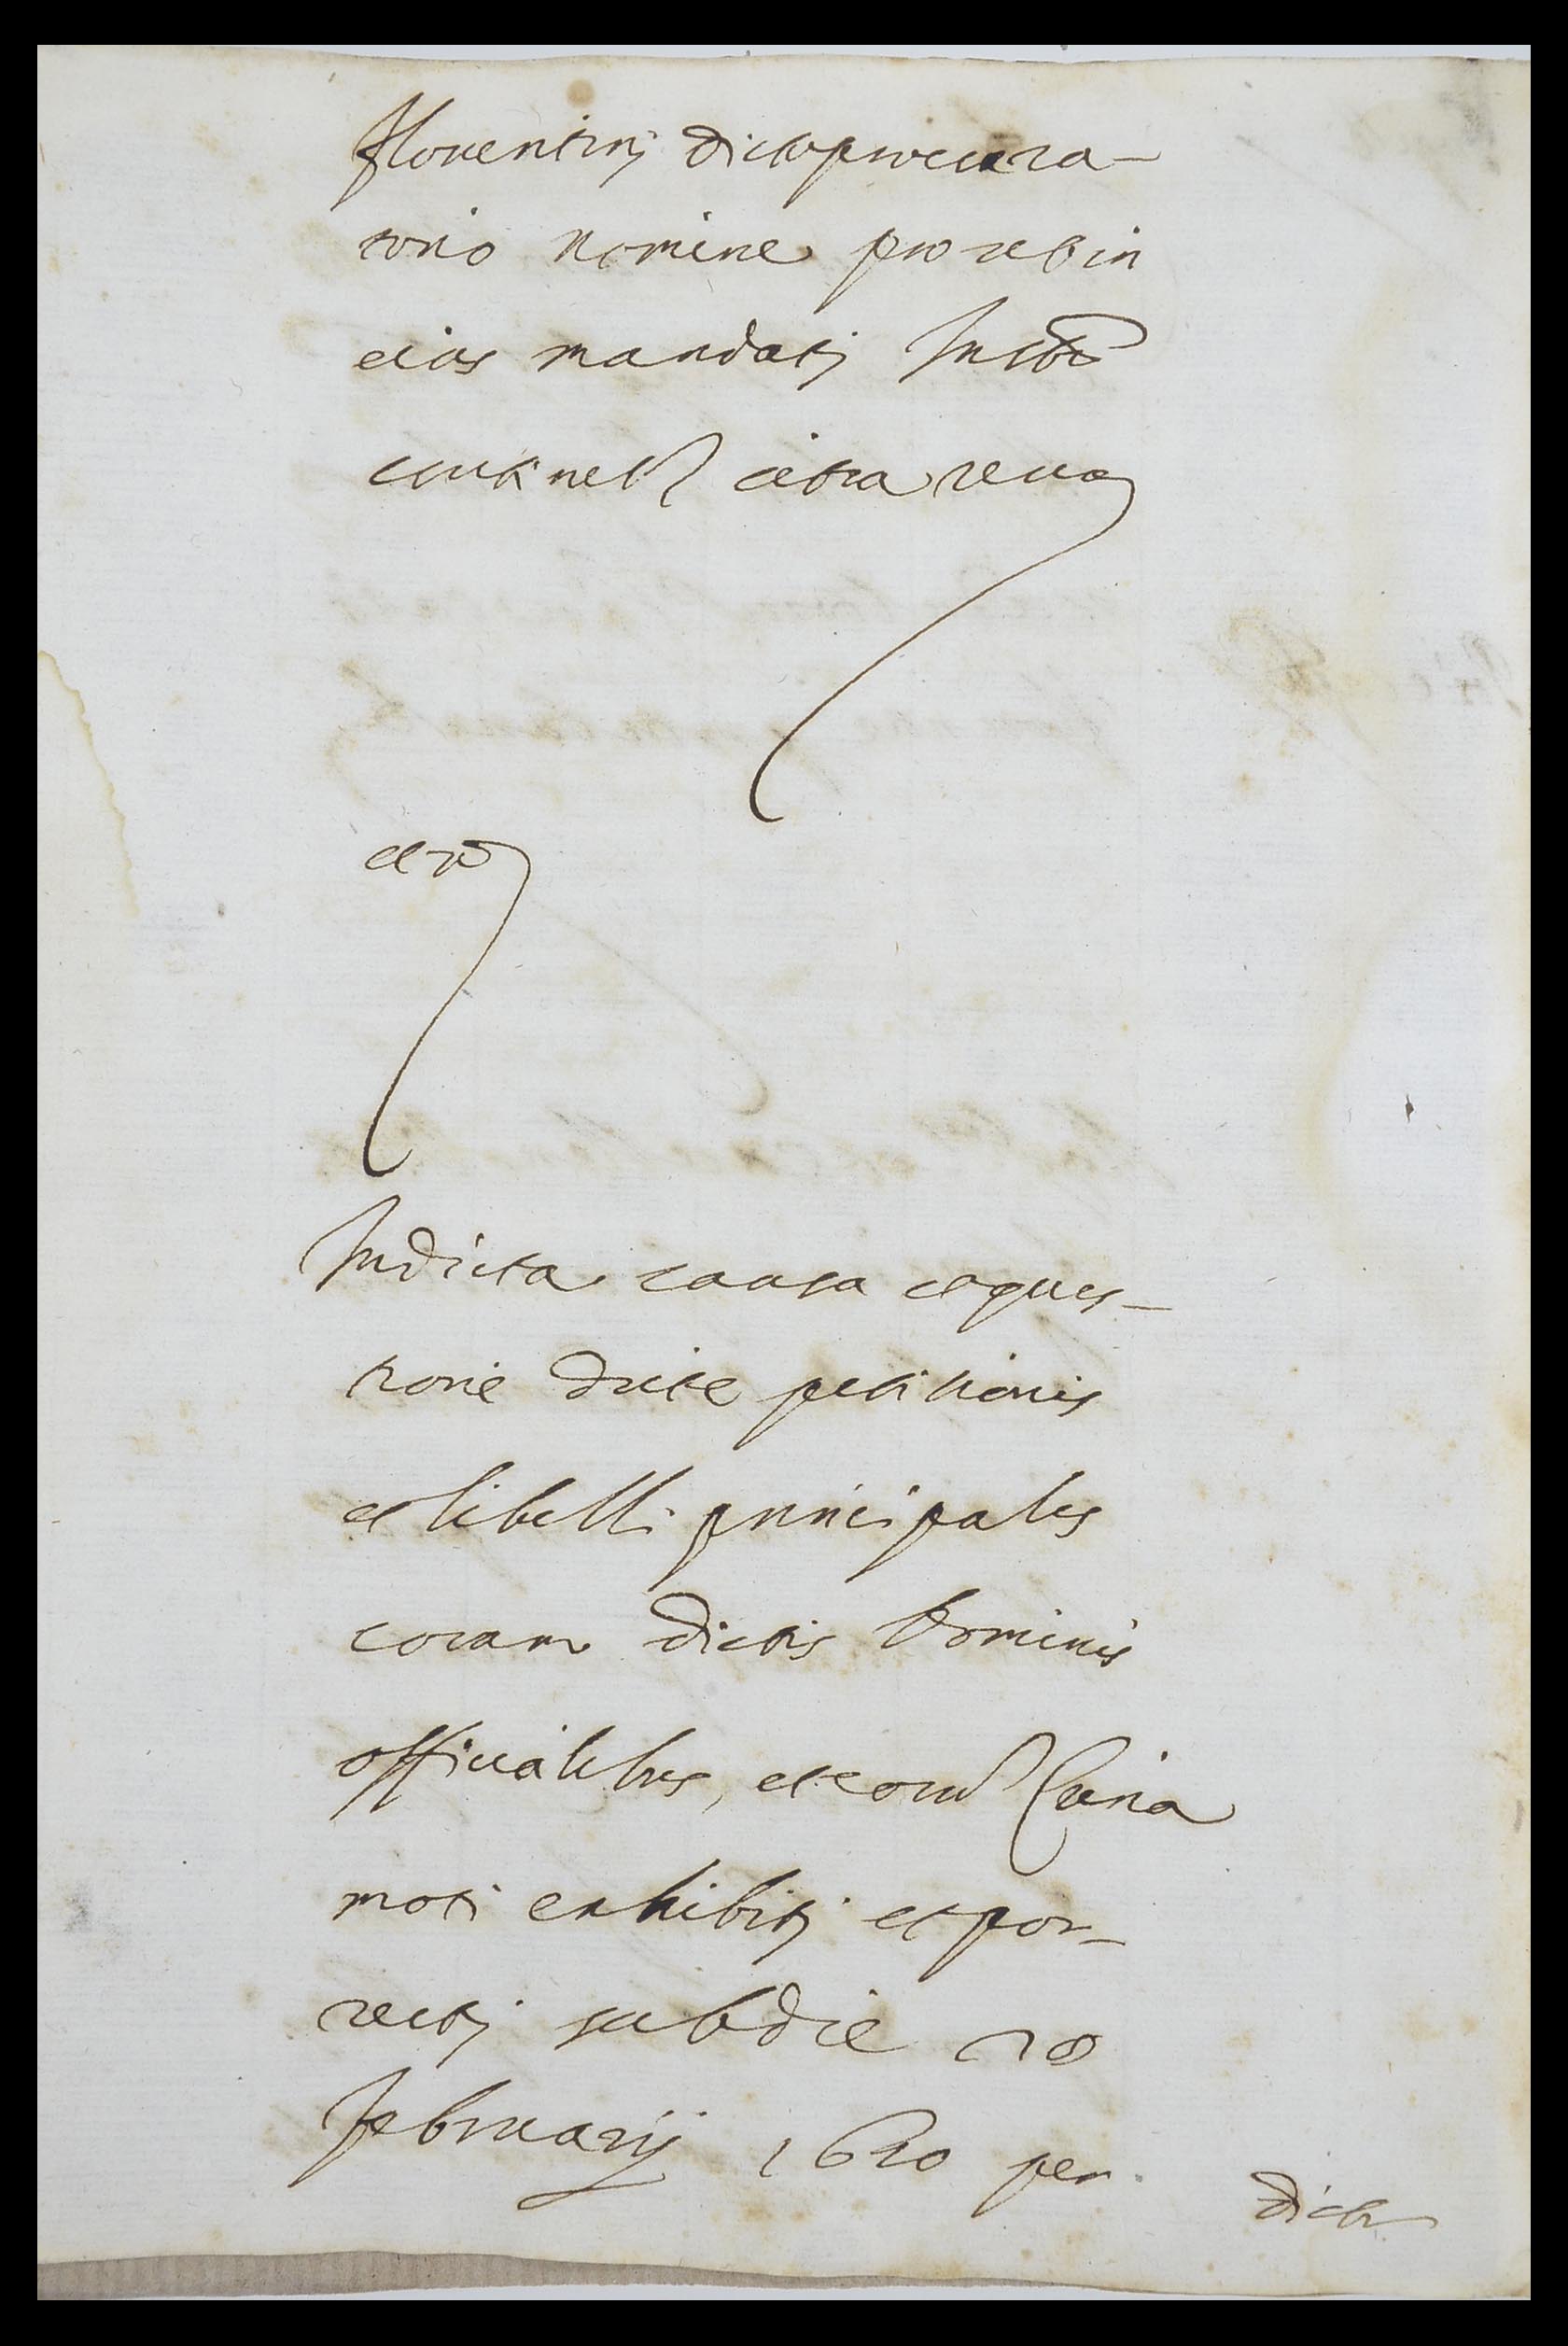 florentinj dicto procura-
torio nomine pro ut in
eius mandatj Instr̃o
continet citra revo
et ñ
In dicta causa et ques-
tione dicte petitionis
et libelli principales
coram dictis Dominis
officialibus, et eoru Curia
moti exhibitj et por-
rectj sub die 28
februarij 1620 per
dict